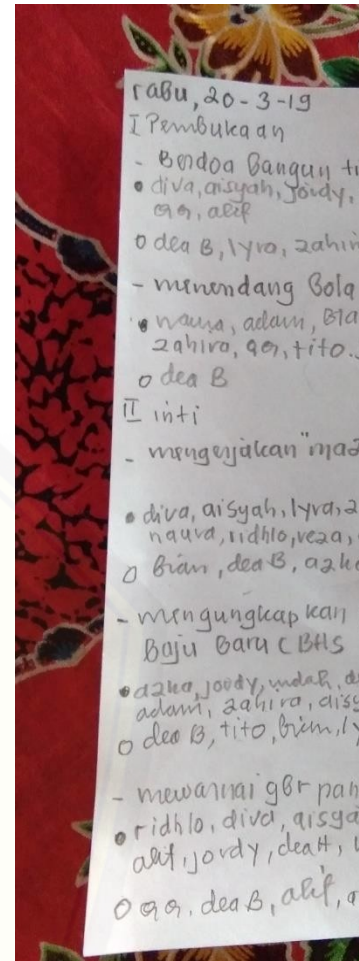 rabu, 20-3-19
I Pembukaan
- Berdoa Bangun
• diva, aisyah, Jordy,
alif
o dea B, lyra, zahir
- menendang Bola
• naura, adam,
zahira, tito
o dea B
II inti
- mengerjakan "maz
• diva, aisyah, lyra,
naura, ridhlo, veza,
o Brian, dea B, azka
- mengungkapkan
Baju Baru (BHS
• azka, joody, indah,
adam, zahira, aisy
o dea B, tito, brian, ly
- mewarnai gBr pan
• ridhlo, diva, aisya
alif, jordy, dea H,
o dea B, alif, a